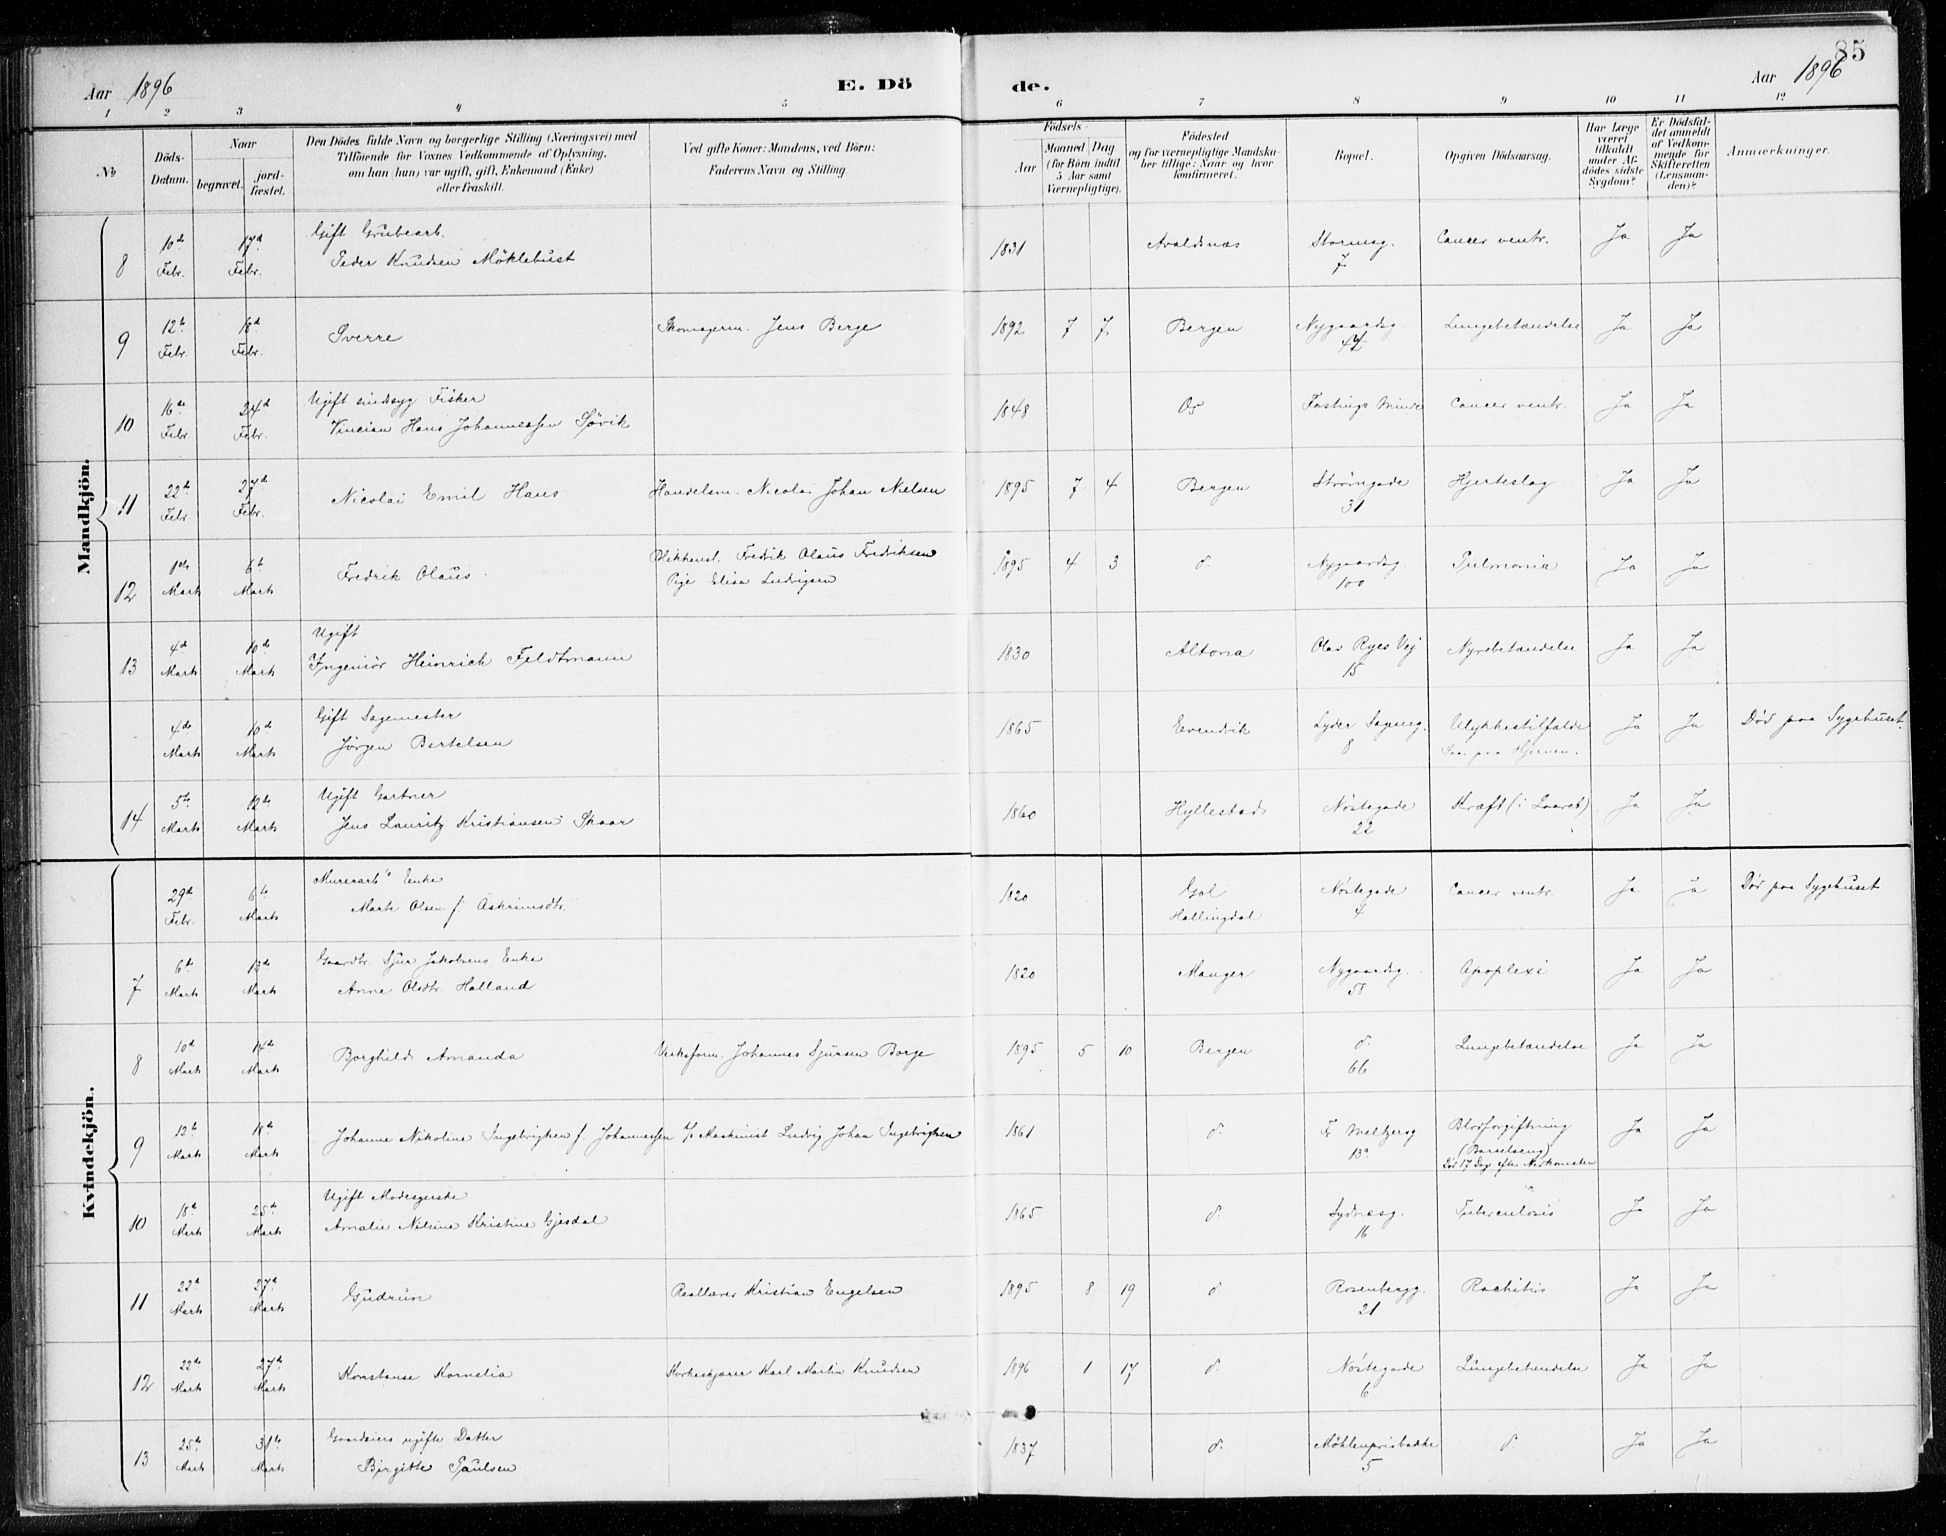 85
Aar 1896 E. Dö de. Aar 1896
1 2 3 4 5 6 7 8 9 10 11 12
No
Döds-Datum.
Naar
begravet. jord-fæstet.
Den Dödes fulde Navn og borgerlige Stilling (Næringsvei) med
Tilföiende for Voxnes Vedkommende af Oplysning,
om han (hun) var ugift, gift, Enkemand (Enke)
eller fraskilt.
Ved gifte Koner: Mandens, ved Börn:
Faderens Navn og Stilling
Födsels-
Aar Maaned Dag
(for Börn indtil
5 Aar samt
Værnepligtige).
Födested
og for værnepligtige Mandska-
ber tillige: Naar og hvor
konfirmeret.
Bopæl.
Opgiven Dödsaarsag.
Har Læge
været
tilkaldt
under Af-
dödes sidste
Sygdom?
Er Dödsfal-
det anmeldt
af Vedkom-
mende for
Skifteretten
(Lensman-
den)?
Anmærkninger.
Mandkjön.
8 10de Febr. 17de Febr. Gift Grubearb.
Peder Knudsen Möklebust 1831 Avaldsnæs Stormsg. 7 Cancer ventr. Ja Ja
9 12te Febr. 18de Febr. Sverre Skomagerm. Jens Berge 1892 7 7 Bergen Nygaardsg. Lungebetændelse Ja Ja
10 16de Febr 24de Febr. Ugift sindssyg Fisker
Hans Johannessen Søvik 1848 Os Fastings Minde Cancer ventr. Ja Ja
11 22de Febr 27de Febr. Nicolai Emil Hans Handelsm. Nicolai Johan Nielsen 1895 7 4 Bergen Strömgade 31 Hjerteslag Ja Ja
12 1ste Marts 6te Marts Fredrik Olaus Fredrik Olaus Fredriksen
Pige Elisa Ludvigsen 1895 4 3 d. Nygaardsg. 100 Pulmonia Ja Ja
13 4de Marts 10de Marts Ugift
Ingeniör Heinrich Feldtmann 1830 Altona Olav Ryes Vej 15 Nyrebetændelse Ja Ja
4de Marts 10de Marts Gift Sagemester
Jörgen Bertelsen 1865 Evendvik Lyder Sagensg. 8 Ulykkestilfælde
Saar paa Hjernen. Ja Ja Död paa Sygehuset.
14 5te Marts 12te Marts Ugift Gartner
Jens Lauritz Kristiansen Skaar 1860 Hyllestad Nöstegade 22 Kræft (i Laaret) Ja Ja
Kvindekjön.
29de Febr. 6te Marts Murerarb. Enke
Marte Olsen f. Askrimsdtr. 1820 Gol
Hallingdal Nöstegade 4 Cancer ventr. Ja Ja Död paa Sygehuset
7 6te Marts 13de Marts Gaardbr. Sjur Jakobsens Enke
Anne Olsdtr. Halland 1820 Manger Nygaardsg. 58 Apoplexi Ja Ja
8 10de Marts 14de Marts Borghild Amanda Verksform. Johannes Sjursen Borge 1895 5 10 Bergen d. 66 Lungebetændelse Ja Ja
9 12te Marts 18de Marts Johanne Nikoline Ingebrigtsen f. Johannessen g/m Maskinist Ludvig Johan Ingebrigtsen 1861 d. Fr Meltzersg 13a Blodforgiftning
(Barselseng)
Död 17 Dage efter Nedkomsten Ja Ja
10 18de Marts 25de Marts Ugift Modesyerske
Amalie Nilsine Kristine Gjesdal 1865 d. Sydnæsg. 16 Tuberculosis Ja Ja
11 22de Marts 27de Marts Gudrun Reallærer Kristian Engelsen 1895 8 19 d. Rosenbergg. 21 Rachitis Ja Ja
12 22de Marts 27de Marts Konstanse Kornelia Korkeskjærer Karl Martin Knudsen 1896 1 17 d. Nöstegade 6 Lungebetændelse Ja Ja
13 25de Marts 31te Marts Gaardeiers ugifte Datter
Birgitte Paulsen 1837 d. Möhlenprisbakke 5 d. Ja Ja